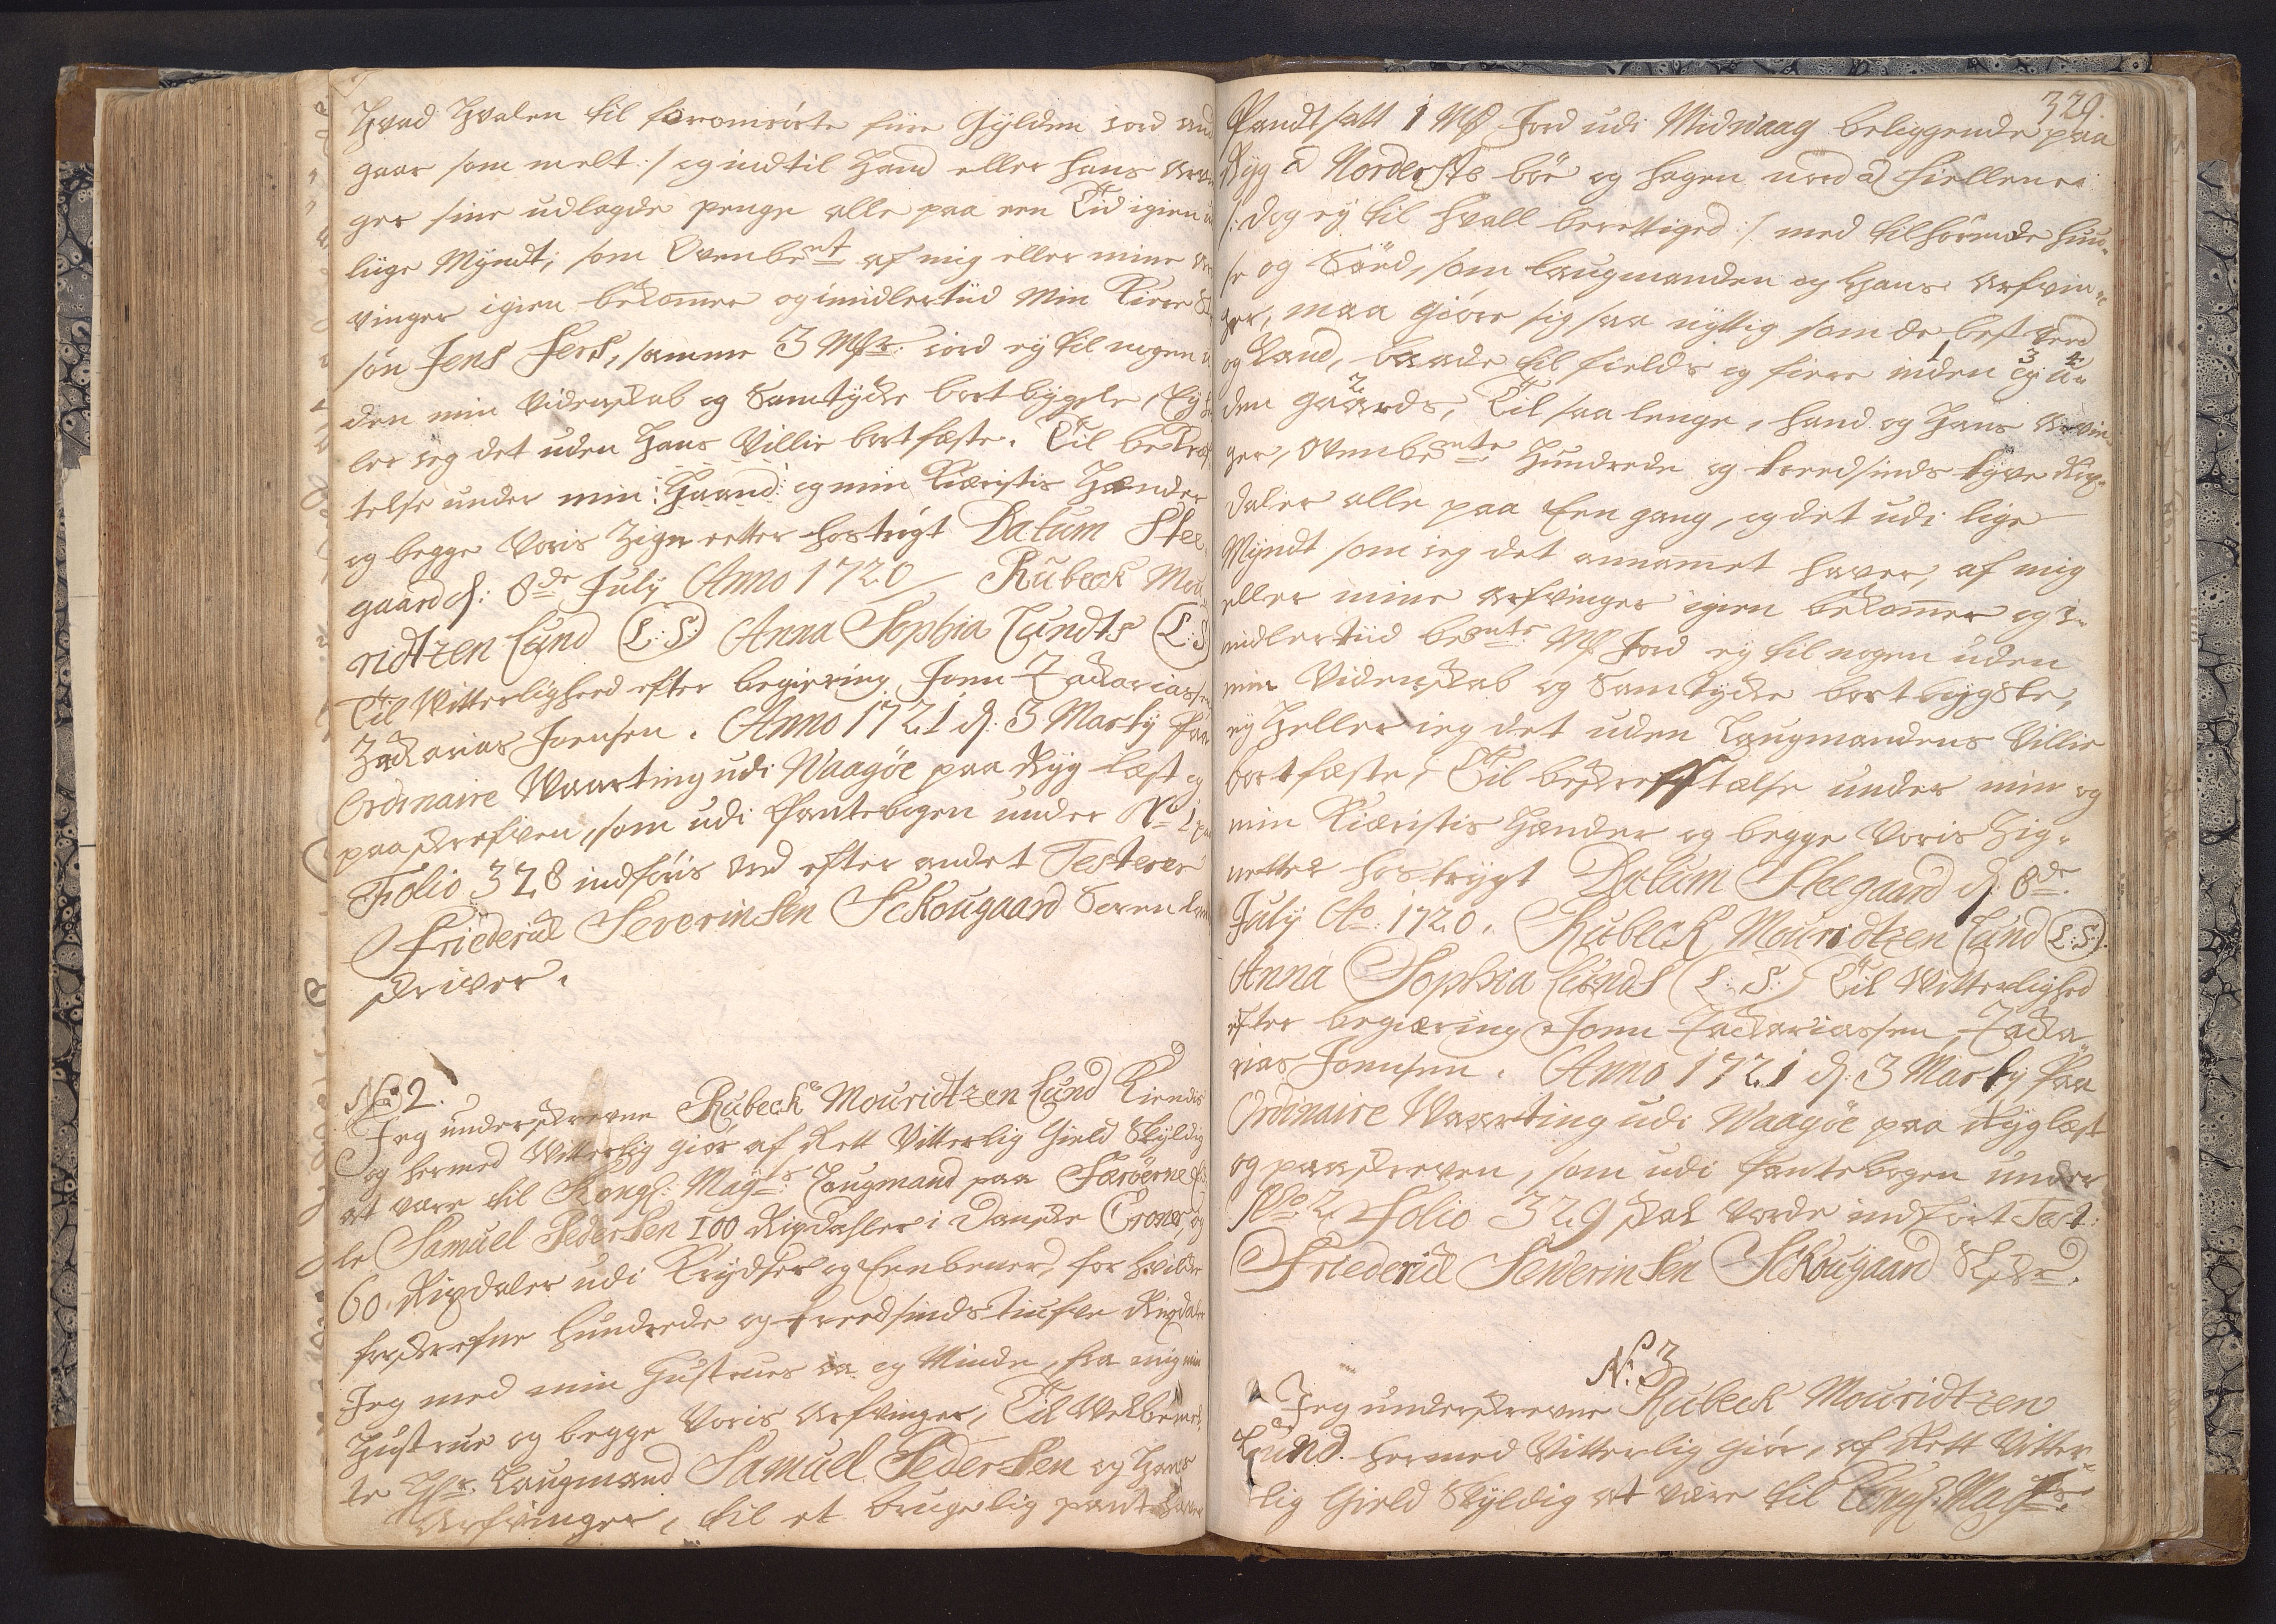 Hvad Hvalen til foromrörte fiire Gylden jord an
gaar som melt :/ og indtil Hand eller hans Arvin
ger sine udlagde penge alle paa een Tid igien
liige Myndt, som Ovenbent af mig eller mine Ar
vinger igien bekommer og imidlertiid Min Kiere
sön Jens Jess, samme 3 Mkr. jord ej til nogen u
den min Videnskab og Samtycke bortbygsle, Ey he
ler jeg det uden Hans Villie bortfæste. Til bekræf
telse under min :Haand: og min Kiæristis Hænder
og begge Voris Zignetter hoströgt Datum Stee
gaard d: 8de July Anno 1720 / Rubeck Mou
ridtzen Lund (L:S:) Anna Sophia Lundts (L:S)
Til Vitterlighed efter begiering Jonn Zackariassen
Zackarias Jonsen. Anno 1721 d: 3 Marty paa
Ordinaire Waarting udi Waagöe paa Ryg læst og
paaskrefven, som udi Pantebogen under No 1 paa
Folio 328 indföris ord efter andet Testerer
Friederick Severinsen Sckougaard Soren
skriver.
No 2.
Jeg underskrevne Rubeck Mouridtzen Lund Kiendis
og hermed Vitterlig giör af Rett Vitterlig Gield Skyldig
at være til Kongl: Mayts: Laugmand paa Færöerne
le Samuel Pedersen 100 Rixdahler i Danske Croner, og
60 Rixdaler udi Krydser og Eenbener, for hvilke
forskrefne Hundrede og treedsinds tiufve Rixdaler
Jeg med min Hustrues Ja og Minde, fra mig min
Hustrue og begge Voris Arfvinger, Til Velbemel
te Hr. Laugmand Samuel Pedersen og Hans
Arfvinger, til et brugelig pant haver
329.
Pandtsatt 1 Mk Jord udi Midvaag beliggende paa
Ryg a Norderste böe og Hagen nord a hiellene
/: dog ey til Hvall berettiged :/ med tilhörende Huu-
se og Sæd, som Laugmanden og Hans Arfvin-
ger, maa giöre sig saa nyttig som de best veed
og kand, baade til fields og fiere inden og u-
1 3 4
den gaards, Til saa lenge, hand og Hans Arvin-
2
ger, Ovenbemte Hundrede og treedsinds tyve Rix-
daler alle paa Een gang, og det udi lige
Myndt som jeg det annammet haver, af mig
eller mine Arfvinger igien bekommer og i-
midlertiid bemte Mk Jord ey til nogen uden
min Videnskab og Samtycke bortbygsle,
ey heller jeg det uden Laugmandens Villie
bortfæste, Til bekreffttelse under min og
min Kiæristis Hænder og begge Voris Zig-
netter hostrygt Datum Steegaard d: 8de
July Ao: 1720. Rubeck Mouridtzen Lund (L:S:).
Anna Sophia Lunds (L:S:) Til Vitterlighed
efter begiæring Jonn Zackariassen, Zacka-
rias Jonsen. Anno 1721 d: 3 Marty paa
Ordinaire Waarting udi Waagöe paa Ryg læst
og paaskreven, som udi Pantebogen under
No. 2 Folio 329 skal vorde indfört Test:
Friederick Severinsen Sckougaard
N: 3
Jeg underskrevne Rubeck Mouridtzen
Lund. hermed Vitterlig giör, af Rett Vitter-
lig Gield Skyldig at være til Kongl: Mayts.